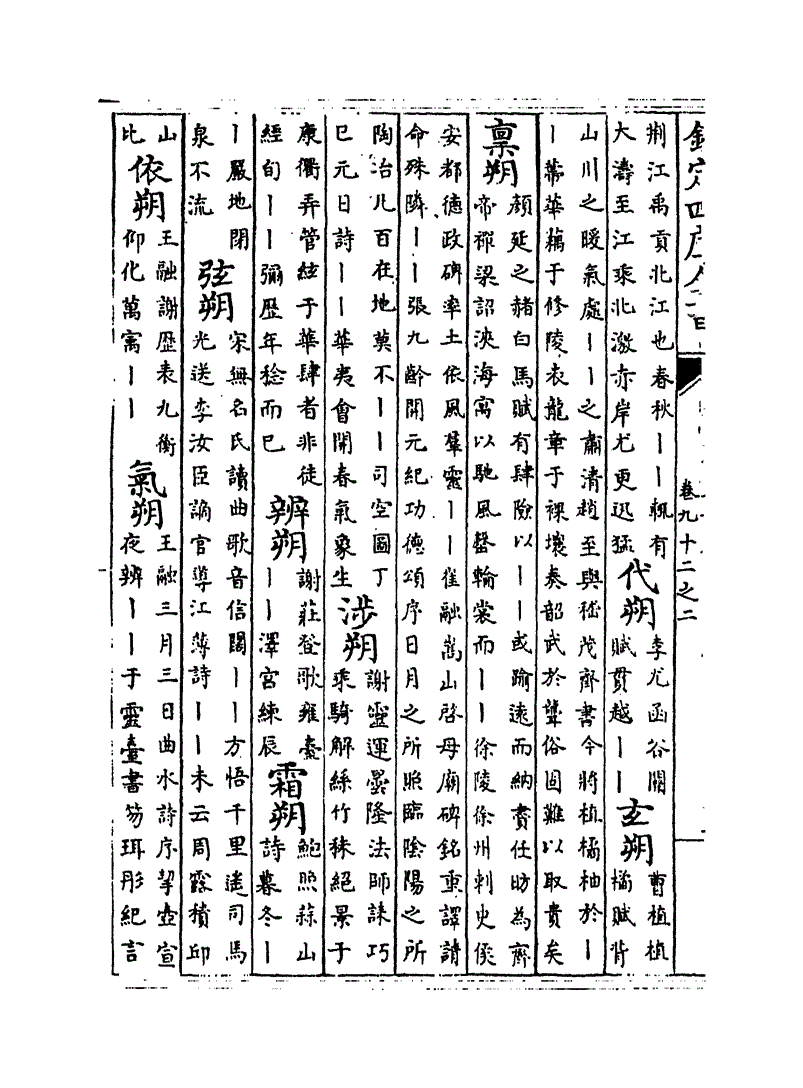 欽定四庫全書
卷九十二之二
荆江禹貢北江也春秋丨丨輒有
大濤至江乘北激赤岸尤更迅猛
代朔
李尤函谷關
賦貫越丨丨
玄朔
曹植植
橘賦背
山川之暖氣處丨丨之肅清趙至與嵇茂齊書今將植橘柚於丨
丨蔕華藕于修陵表龍章于裸壤奏韶武於聾俗固難以取貴矣
稟朔
顔延之赭白馬賦有肆險以丨丨或踰遠而納賮任昉為齊
帝禪梁詔浹海寓以馳風罄輪裳而丨丨徐陵徐州刺史侯
安都德政碑率土依風羣靈丨丨崔融嵩山啓母廟碑銘重譯請
命殊隣丨丨張九齡開元紀功德頌序日月之所照臨陰陽之所
陶冶凡百在地莫不丨丨司空圖丁
巳元日詩丨丨華夷會開春氣象生
涉朔
謝靈運曇隆法師誄巧
乘騎解絲竹秣絕景于
康衢弄管絃于華肆者非徒
經旬丨丨彌歷年稔而已
辨朔
謝莊登歌雍臺
丨丨澤宮練辰
霜朔
鮑照蒜山
詩暮冬丨
丨嚴地閉
泉不流
弦朔
宋無名氏讀曲歌音信闊丨丨方悟千里遥司馬
光送李汝臣謫官導江薄詩丨丨未云周露積邱
山
比
依朔
王融謝歷表九衡
仰化萬寓丨丨
氣朔
王融三月三日曲水詩序挈壺宣
夜辨丨丨于靈臺書笏珥彤紀言